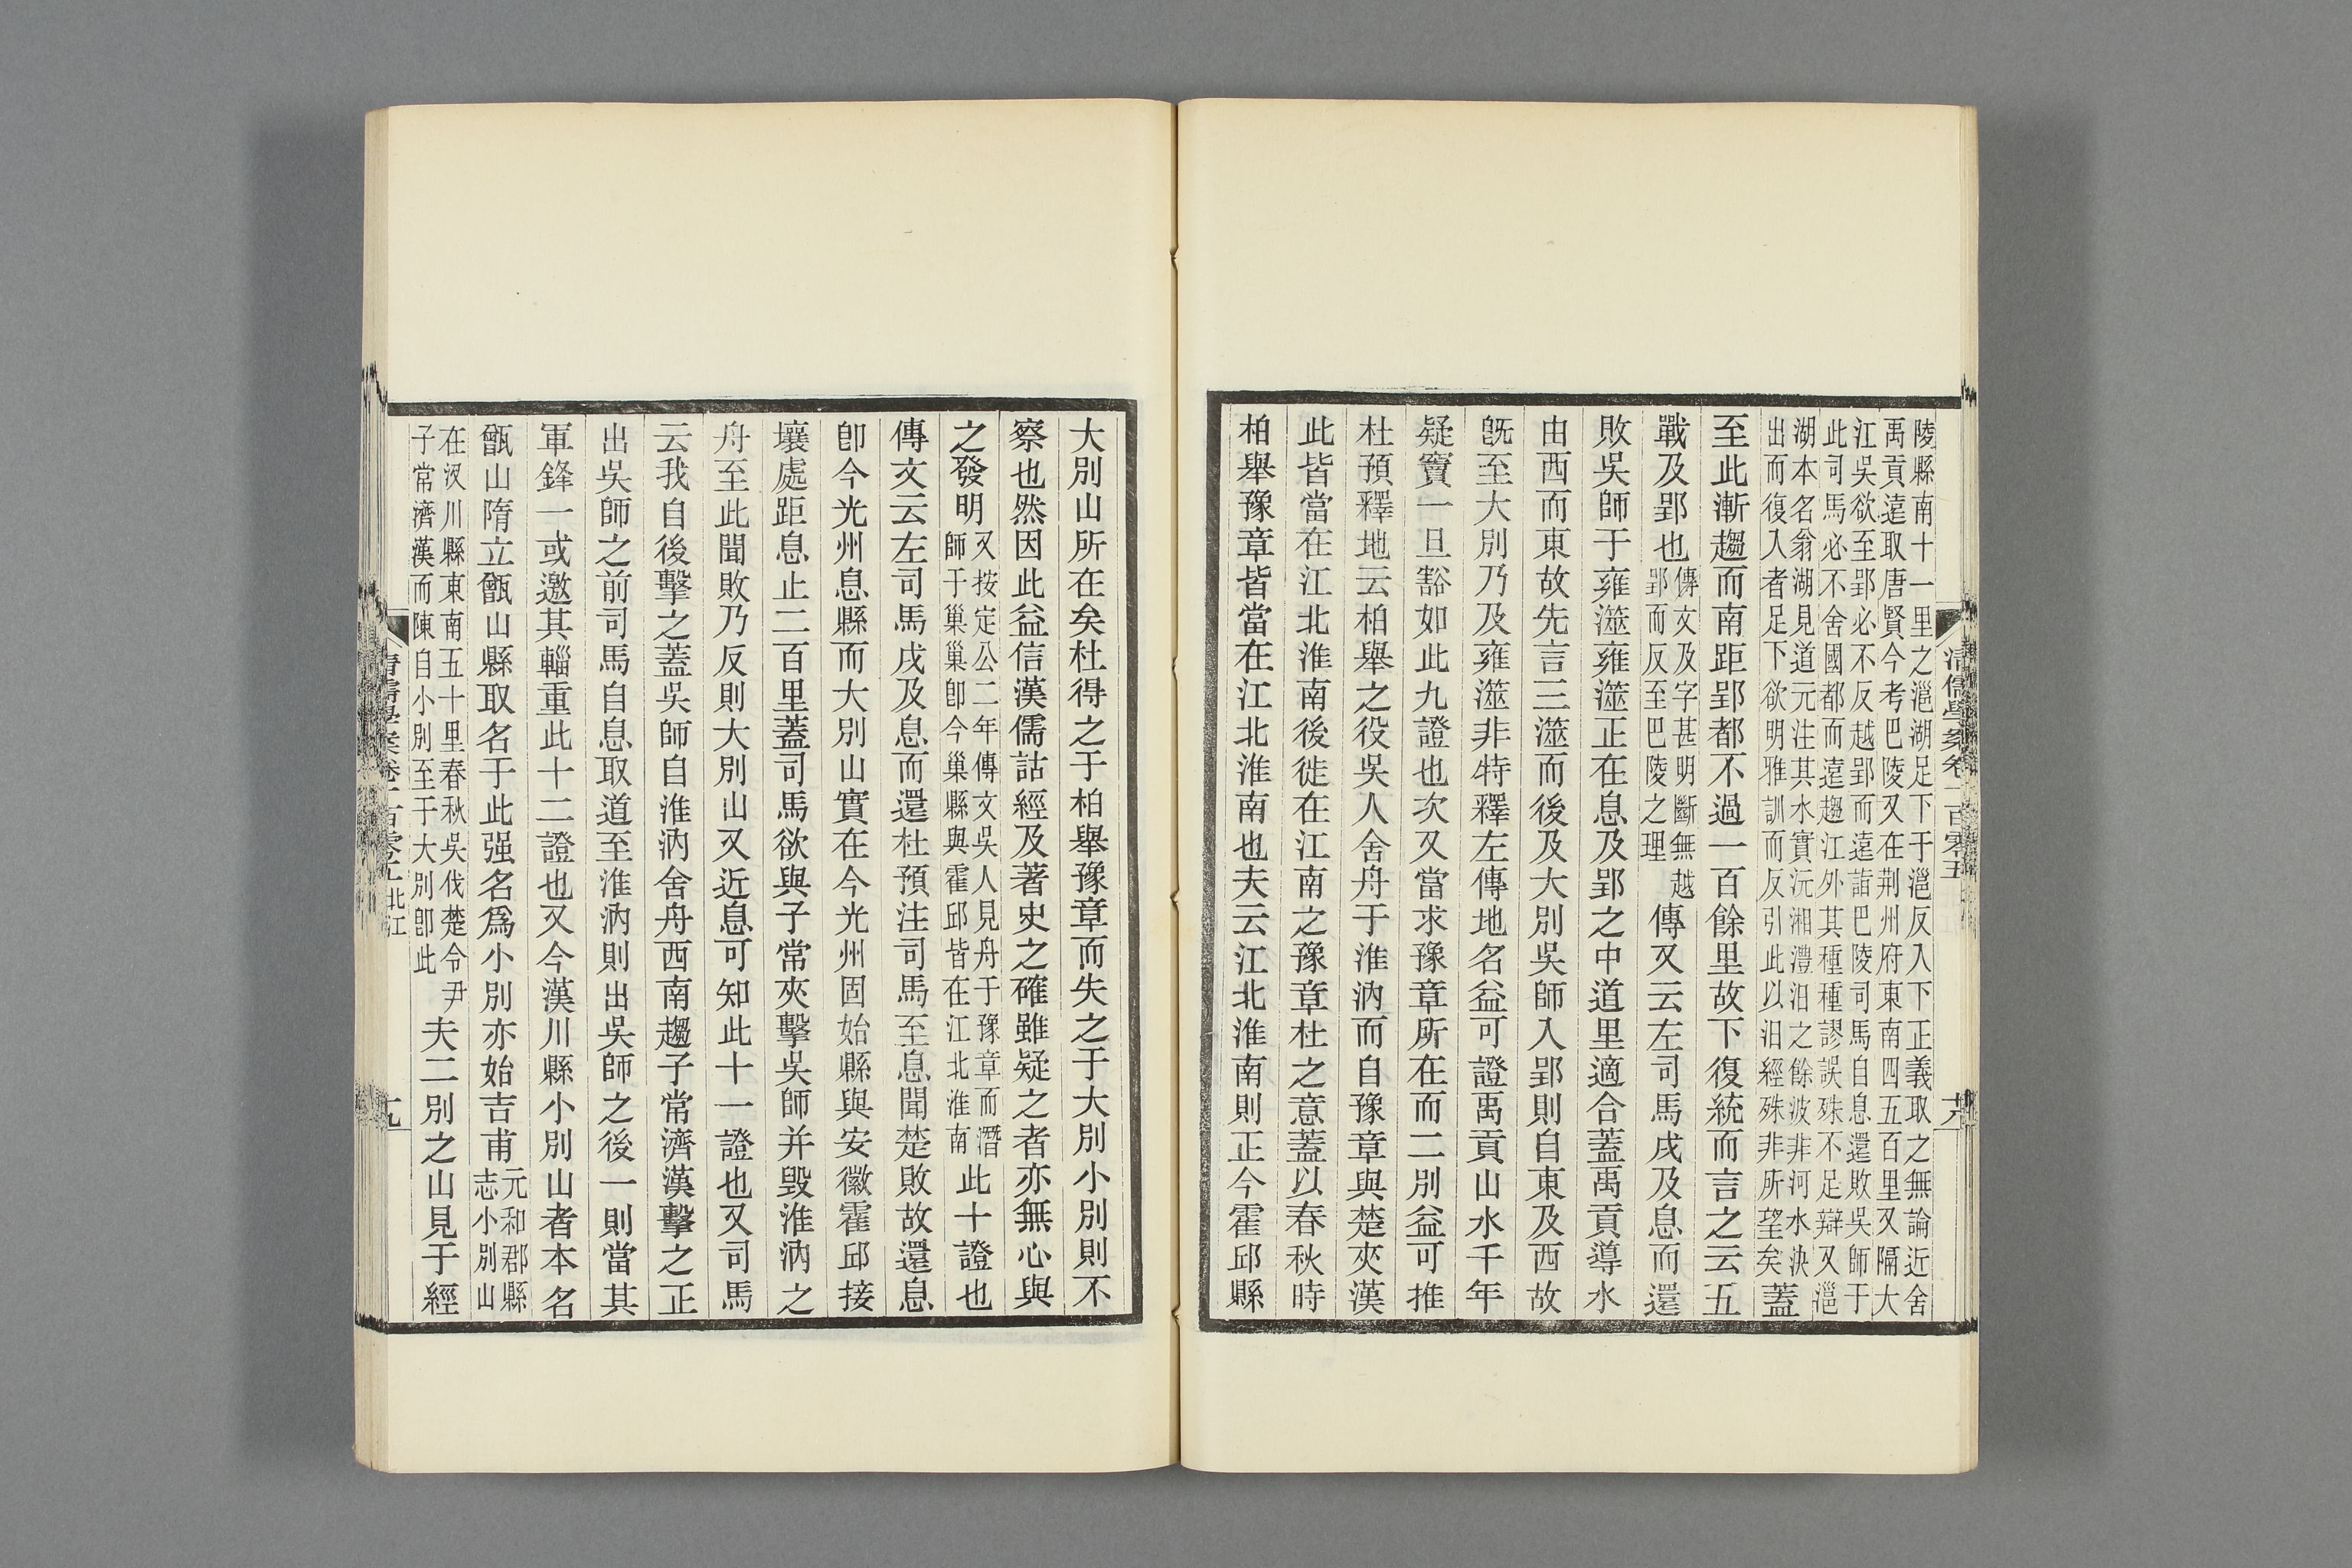 清儒學案卷一百零五
陵縣南十一里之㴩湖足下于㴩反入下正義取之無論近舍
禹貢遠取唐賢今考巴陵又在荆州府東南四五百里又隔大
江吳欲至郢必不反越郢而遠詣巴陵司馬自息還敗吳師于
此司馬必不舍國都而遠趨江外其種種謬誤殊不足辯又㴩
湖本名翁湖見道元注其水實沅湘澧汨之餘波非河水決
出而復入者足下欲明雅訓而反引此以汨經殊非所望矣蓋
至此漸趨而南距郢都不過一百餘里故下復統而言之云五
戰及郢也傳文及字甚明斷無越
郢而反至巴陵之理傳又云左司馬戌及息而還
敗吳師于雍澨雍澨正在息及郢之中道里適合蓋禹貢導水
由西而東故先言三澨而後及大別吳師入郢則自東及西故
旣至大別乃及雍澨非特釋左傳地名益可證禹貢山水千年
疑竇一旦豁如此九證也次又當求豫章所在而二別益可推
杜預釋地云柏舉之役吳人舍舟于淮汭而自豫章與楚夾漢
此皆當在江北淮南後徙在江南之豫章杜之意蓋以春秋時
柏舉豫章皆當在江北淮南也夫云江北淮南則正今霍邱縣
大別山所在矣杜得之于柏舉豫章而失之于大別小別則不
察也然因此益信漢儒詁經及著史之確雖疑之者亦無心與
之發明又按定公二年傳文吳人見舟于豫章而潛
師于巢巢卽今巢縣與霍邱皆在江北淮南此十證也
傳文云左司馬戌及息而還杜預注司馬至息聞楚敗故還息
卽今光州息縣而大別山實在今光州固始縣與安徽霍邱接
壤處距息止二百里蓋司馬欲與子常夾擊吳師并毁淮汭之
舟至此聞敗乃反則大別山又近息可知此十一證也又司馬
云我自後擊之蓋吳師自淮汭舍舟西南趨子常濟漢擊之正
出吳師之前司馬自息取道至淮汭則出吳師之後一則當其
軍鋒一或邀其輜重此十二證也又今漢川縣小別山者本名
甑山隋立甑山縣取名于此强名爲小別亦始吉甫元和郡縣
志小別山
在汊川縣東南五十里春秋吳伐楚令尹
子常濟漢而陳自小別至于大別卽此夫二別之山見于經
北江